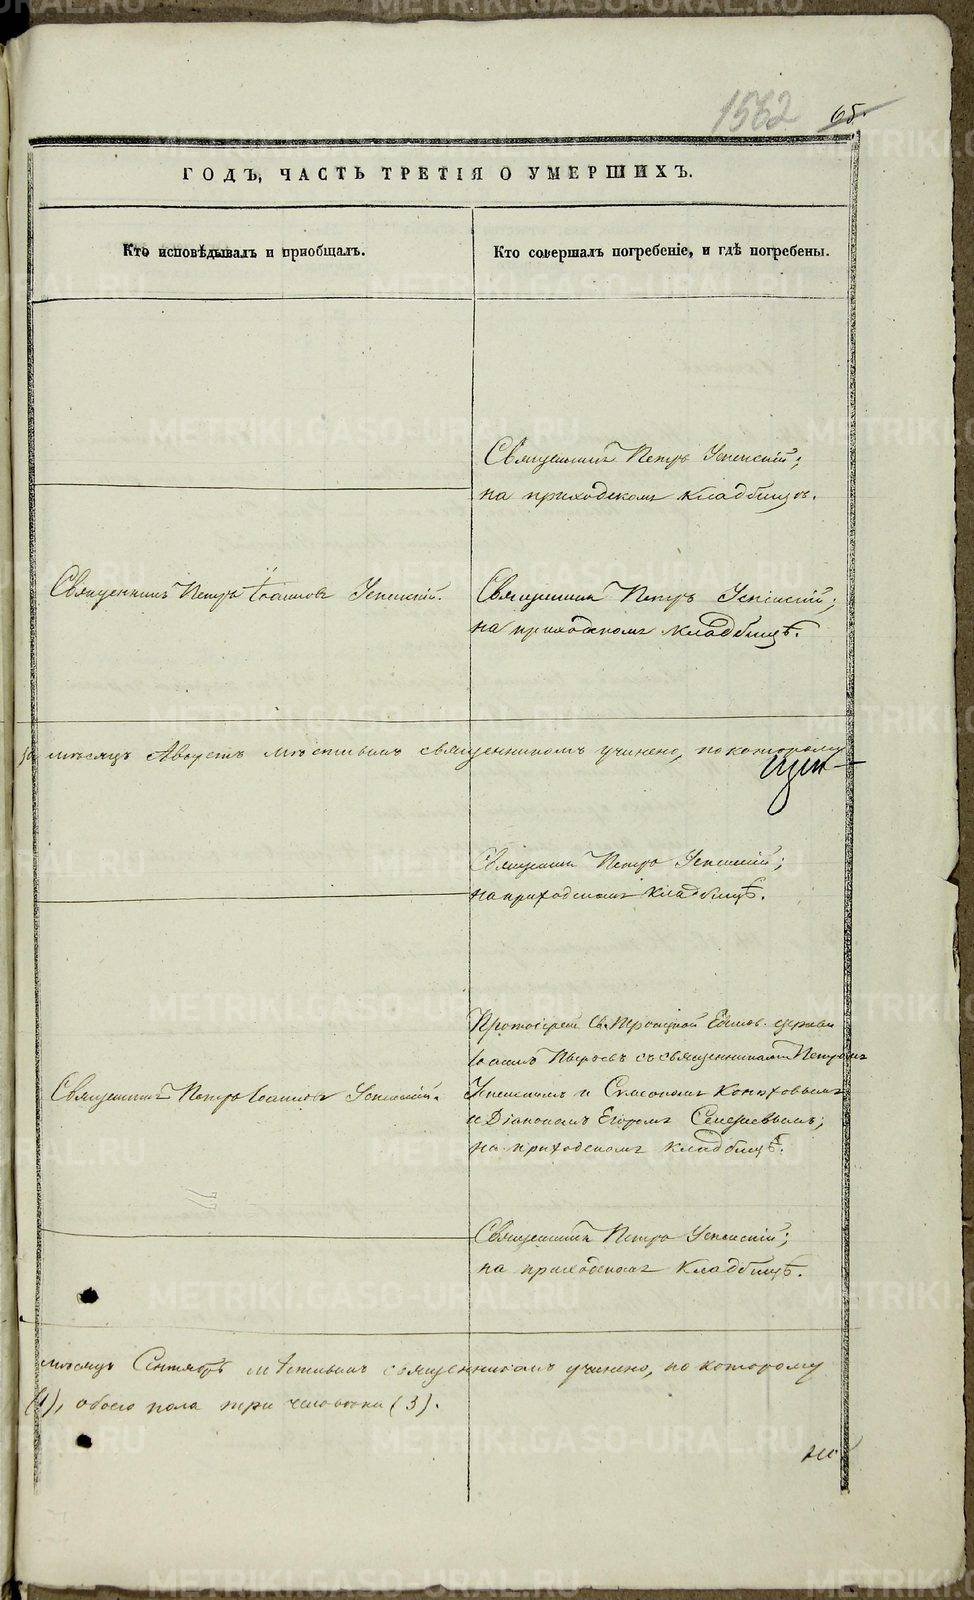 1562 65.
ГОДЪ, ЧАСТЬ ТРЕТІЯ О УМЕРШИХЪ.
Кто исповѣдывалъ и пріобщалъ.
Кто совершалъ погребеніе, и гдѣ погребены.
Священникъ Петръ Успенскій;
на приходскомъ кладбищѣ.
Священникъ Петръ Іоанновъ Успенскій.
Священникъ Петръ Успенскій;
на приходскомъ кладбищѣ.
за мѣсяцъ Августъ мѣстнымъ священникомъ учинено, по которому
Священникъ Петръ Успенскій;
на приходскомъ кладбищѣ.
Священникъ Петръ Іоанновъ Успенскій.
Протоіерей Св. Троицкой Един. церкви
Іоаннъ съ священниками Петромъ
Успенскимъ и Симеономъ Конюховымъ
и Діакономъ Егоромъ
на приходскомъ кладбищѣ.
Священникъ Петръ Успенскій;
на приходскомъ кладбищѣ.
мѣсяцъ Сентябрь мѣстнымъ священникомъ учинено, по которому
(1), обоего пола три человѣка (3).
METRIKI.GASO-URAL.RU